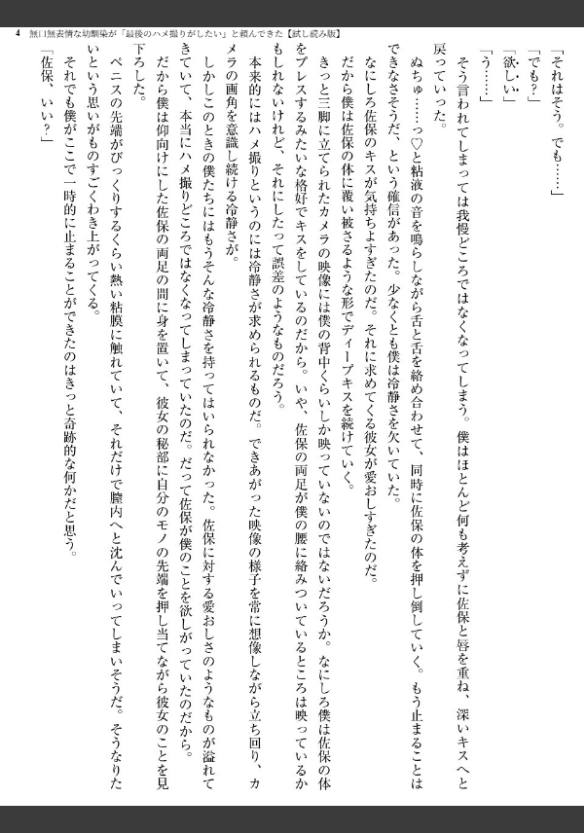 4 無口無表情な幼馴染が「最後のハメ撮りがしたい」と頼んできた【試し読み版】
「それはそう。でも……」
「でも?」
「欲しい」
「う……」
そう言われてしまっては我慢どころではなくなってしまう。僕はほとんど何も考えずに佐保と唇を重ね、深いキスへと
戻っていった。
ぬちゅ……っ♡と粘液の音を鳴らしながら舌と舌を絡め合わせて、同時に佐保の体を押し倒していく。もう止まることは
できなさそうだ、という確信があった。少なくとも僕は冷静さを欠いていた。
なにしろ佐保のキスが気持ちよすぎたのだ。それに求めてくる彼女が愛おしすぎたのだ。
だから僕は佐保の体に覆い被さるような形でディープキスを続けていく。
きっと三脚に立てられたカメラの映像には僕の背中くらいしか映っていないのではないだろうか。なにしろ僕は佐保の体
をプレスするみたいな格好でキスをしているのだから。いや、佐保の両足が僕の腰に絡みついているところは映っているか
もしれないけれど、それにしたって誤差のようなものだろう。
本来的にはハメ撮りというのには冷静さが求められるものだ。できあがった映像の様子を常に想像しながら立ち回り、カ
メラの画角を意識し続ける冷静さが。
しかしこのときの僕たちにはもうそんな冷静さを持ってはいられなかった。佐保に対する愛おしさのようなものが溢れて
きていて、本当にハメ撮りどころではなくなってしまっていたのだ。だって佐保が僕のことを欲しがっていたのだから。
だから僕は仰向けにした佐保の両足の間に身を置いて、彼女の秘部に自分のモノの先端を押し当てながら彼女のことを見
下ろした。
ペニスの先端がびっくりするくらい熱い粘膜に触れていて、それだけで膣内へと沈んでいってしまいそうだ。そうなりた
いという思いがものすごくわき上がってくる。
それでも僕がここで一時的に止まることができたのはきっと奇跡的な何かだと思う。
「佐保、いい?」